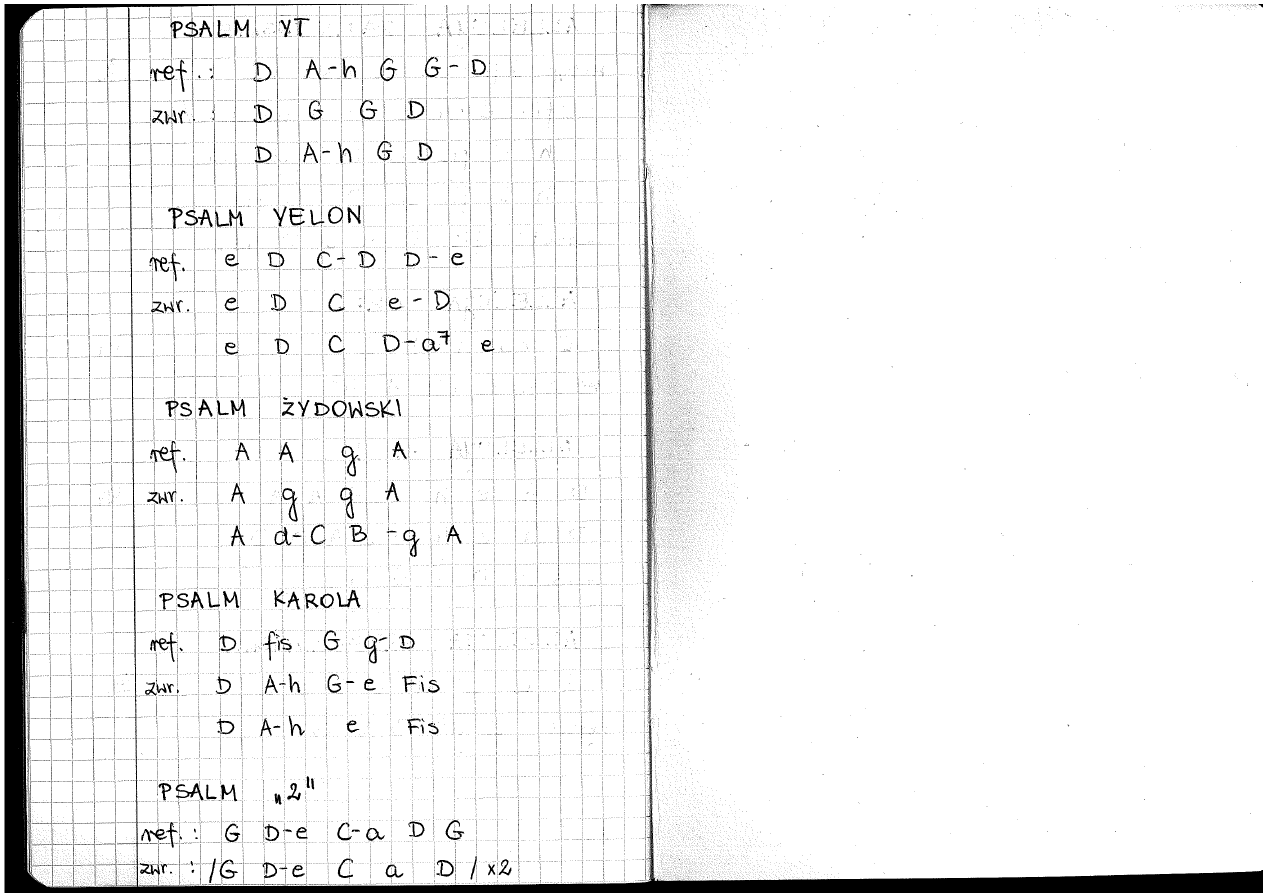 PSALM YT
ref.: D A-h G G-D
zwr.: D G G D
D A-h G D
PSALM YELON
ref. e D C-D D-e
zwr. e D C e-D
e D C D-a⁷ e
PSALM ŻYDOWSKI
ref. A A g A
zwr. A g g A
A d-C B-g A
PSALM KAROLA
ref. D fis G g-D
zwr. D A-h G-e Fis
D A-h e Fis
PSALM „2"
ref.: G D-e C-a D G
zwr.: /G D-e C a D / x2